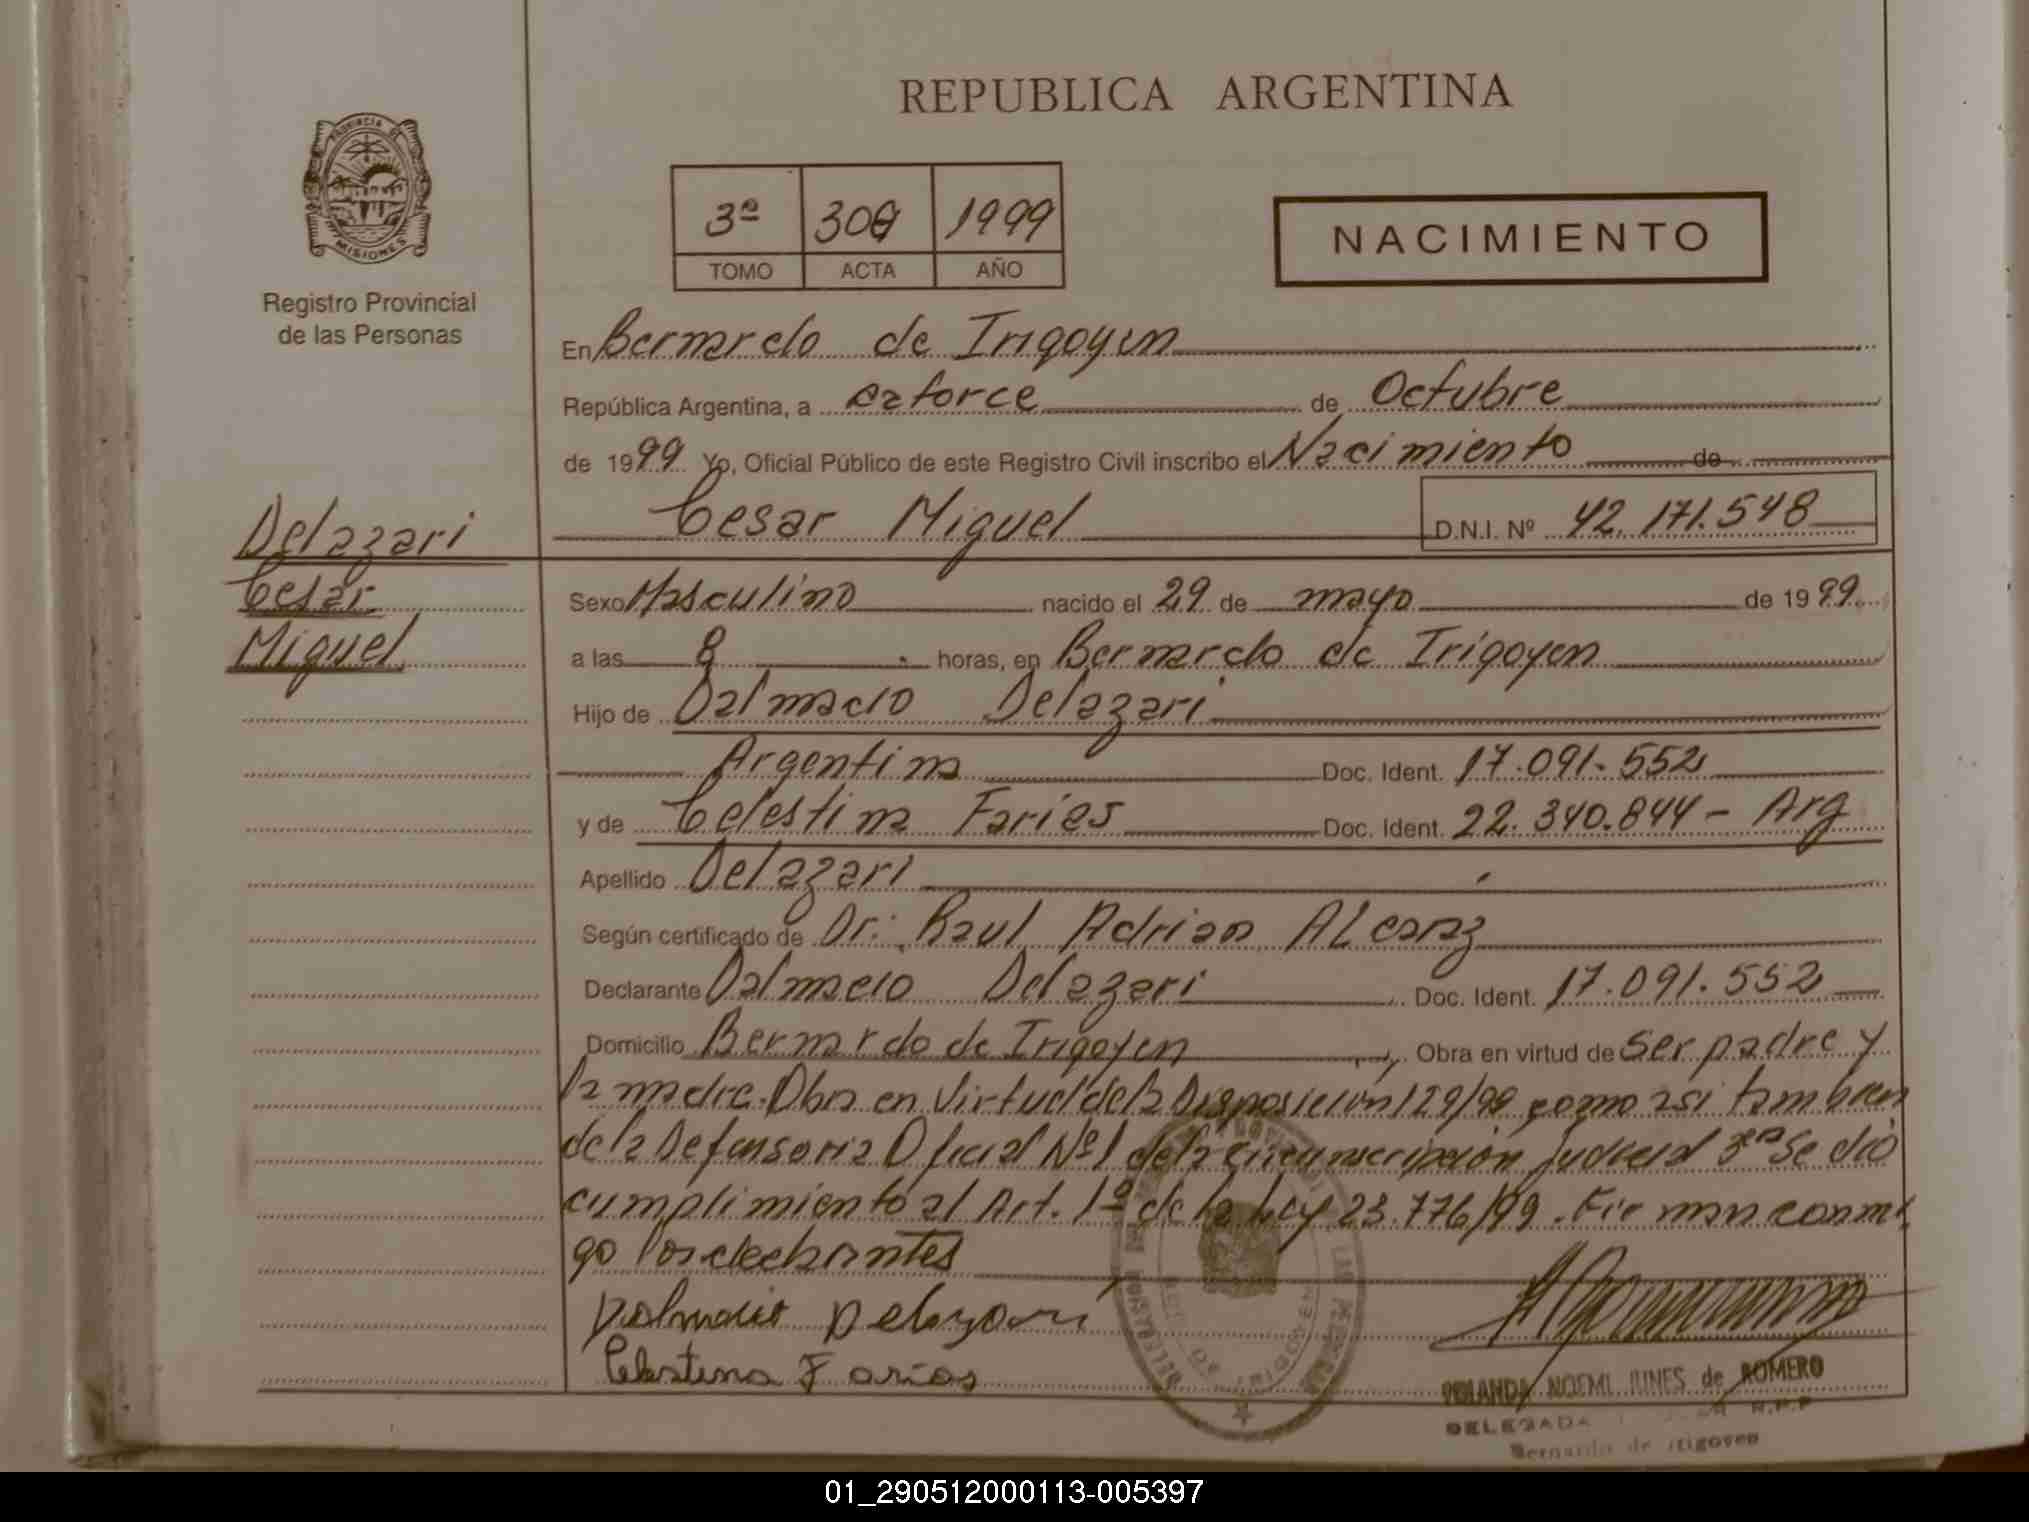 REPUBLICA ARGENTINA
PROVINCIA DE
MISIONES
Registro Provincial
de las Personas
3º 1999
TOMO ACTA AÑO
NACIMIENTO
En Bernardo de Irigoyen
República Argentina, a catorce de Octubre
de 1999 Yo, Oficial Público de este Registro Civil inscribo el Nacimiento de
Cesar Miguel D.N.I. Nº 42.171.548
Delazari
Cesar
Miguel
Sexo Masculino nacido el 29 de mayo de 1999
a las 8 horas, en Bernardo de Irigoyen
Hijo de Dalmacio Delazari
Argentina Doc. Ident. 17.091.552
y de Celestina Farias Doc. Ident. 22.340.844 - Arg
Apellido Delazari
Según certificado de Dr: Raul Adrian ALcaraz
Declarante Dalmacio Delazari Doc. Ident. 17.091.552
Domicilio Bernardo de Irigoyen Obra en virtud de ser padre y
la madre. Obra en virtud de la Disposicion 129/99 como asi tambien
de la Defensoria Oficial Nº1 de la circunscripción judicial 3ra Se dió
cumplimiento al Art. 1º de la Ley 23.776/99. Firman conmi
go los declarantes
Dalmacio Delazari
Celestina Farias
YOLANDA NOEMI de ROMERO
DELEGADA R.P.P
Bernardo de Irigoyen
01_290512000113-005397